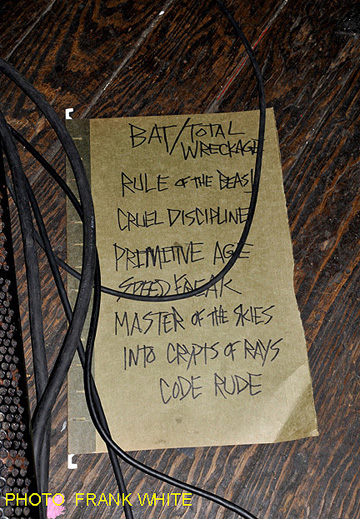 BAT/TOTAL
WRECKAGE
RULE OF THE BEAST
CRUEL DISCIPLINE
PRIMITIVE AGE
SPEED FREAK
MASTER OF THE SKIES
INTO CRYPTS OF RAYS
CODE RUDE
PHOTO FRANK WHITE